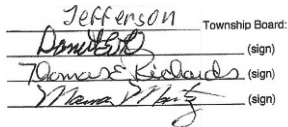 Jefferson Township Board:
(sign)
Thomas E Richards (sign)
(sign)